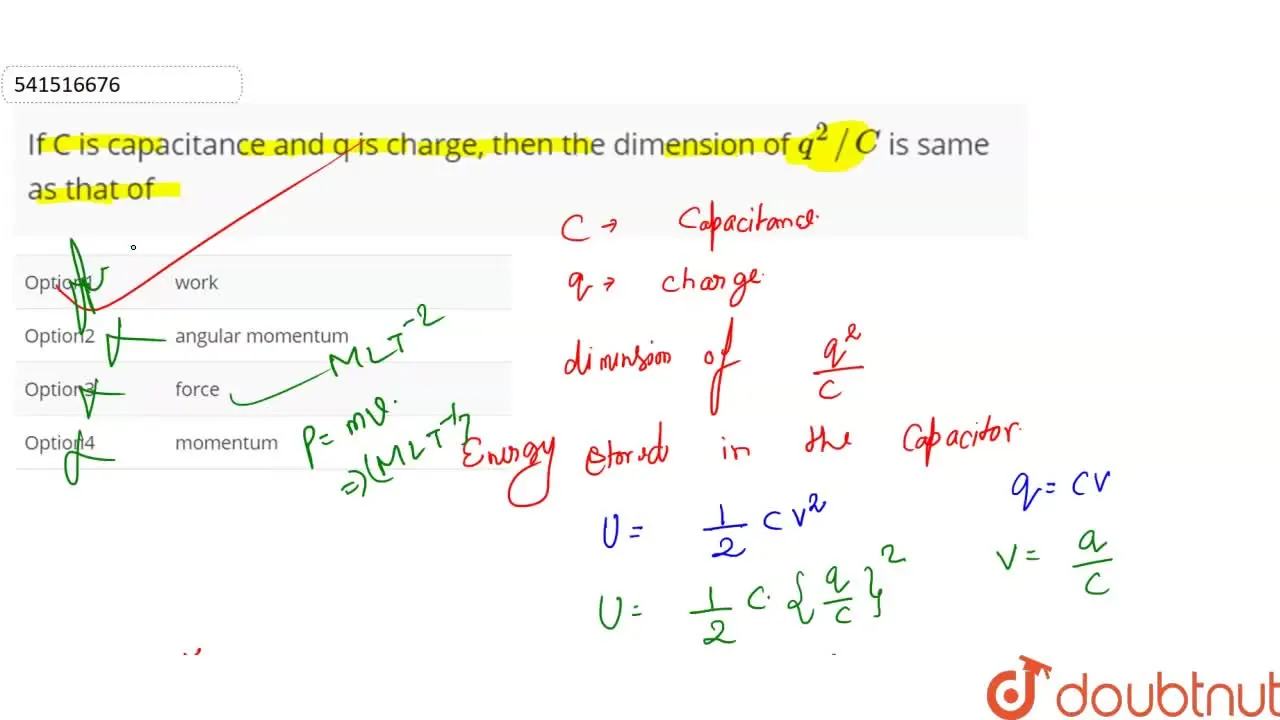 541516676
If C is capacitance and q is charge, then the dimension of q² / C is same
as that of
Option1 work
Option2 angular momentum
Option3 force
Option4 momentum
MLT⁻²
P = mv.
⇒ (MLT⁻¹)
C → Capacitance.
q → charge.
dimension of q²/C
Energy stored in the Capacitor.
U = 1/2 C V²
q = CV
U = 1/2 C. {q/C}²
V = q/C
doubtnut